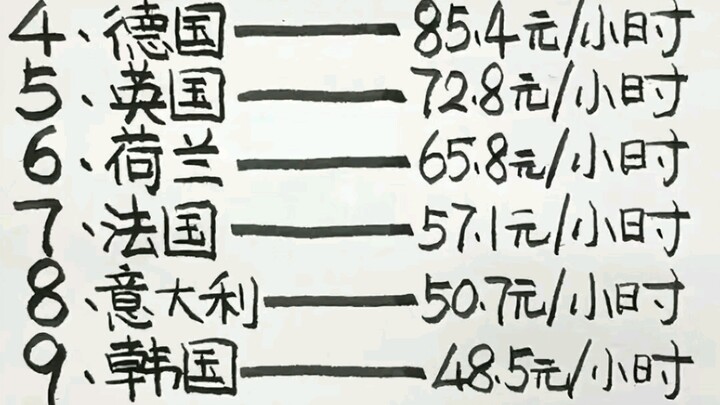 4、德国——85.4元/小时
5、英国——72.8元/小时
6、荷兰——65.8元/小时
7、法国——57.1元/小时
8、意大利——50.7元/小时
9、韩国——48.5元/小时